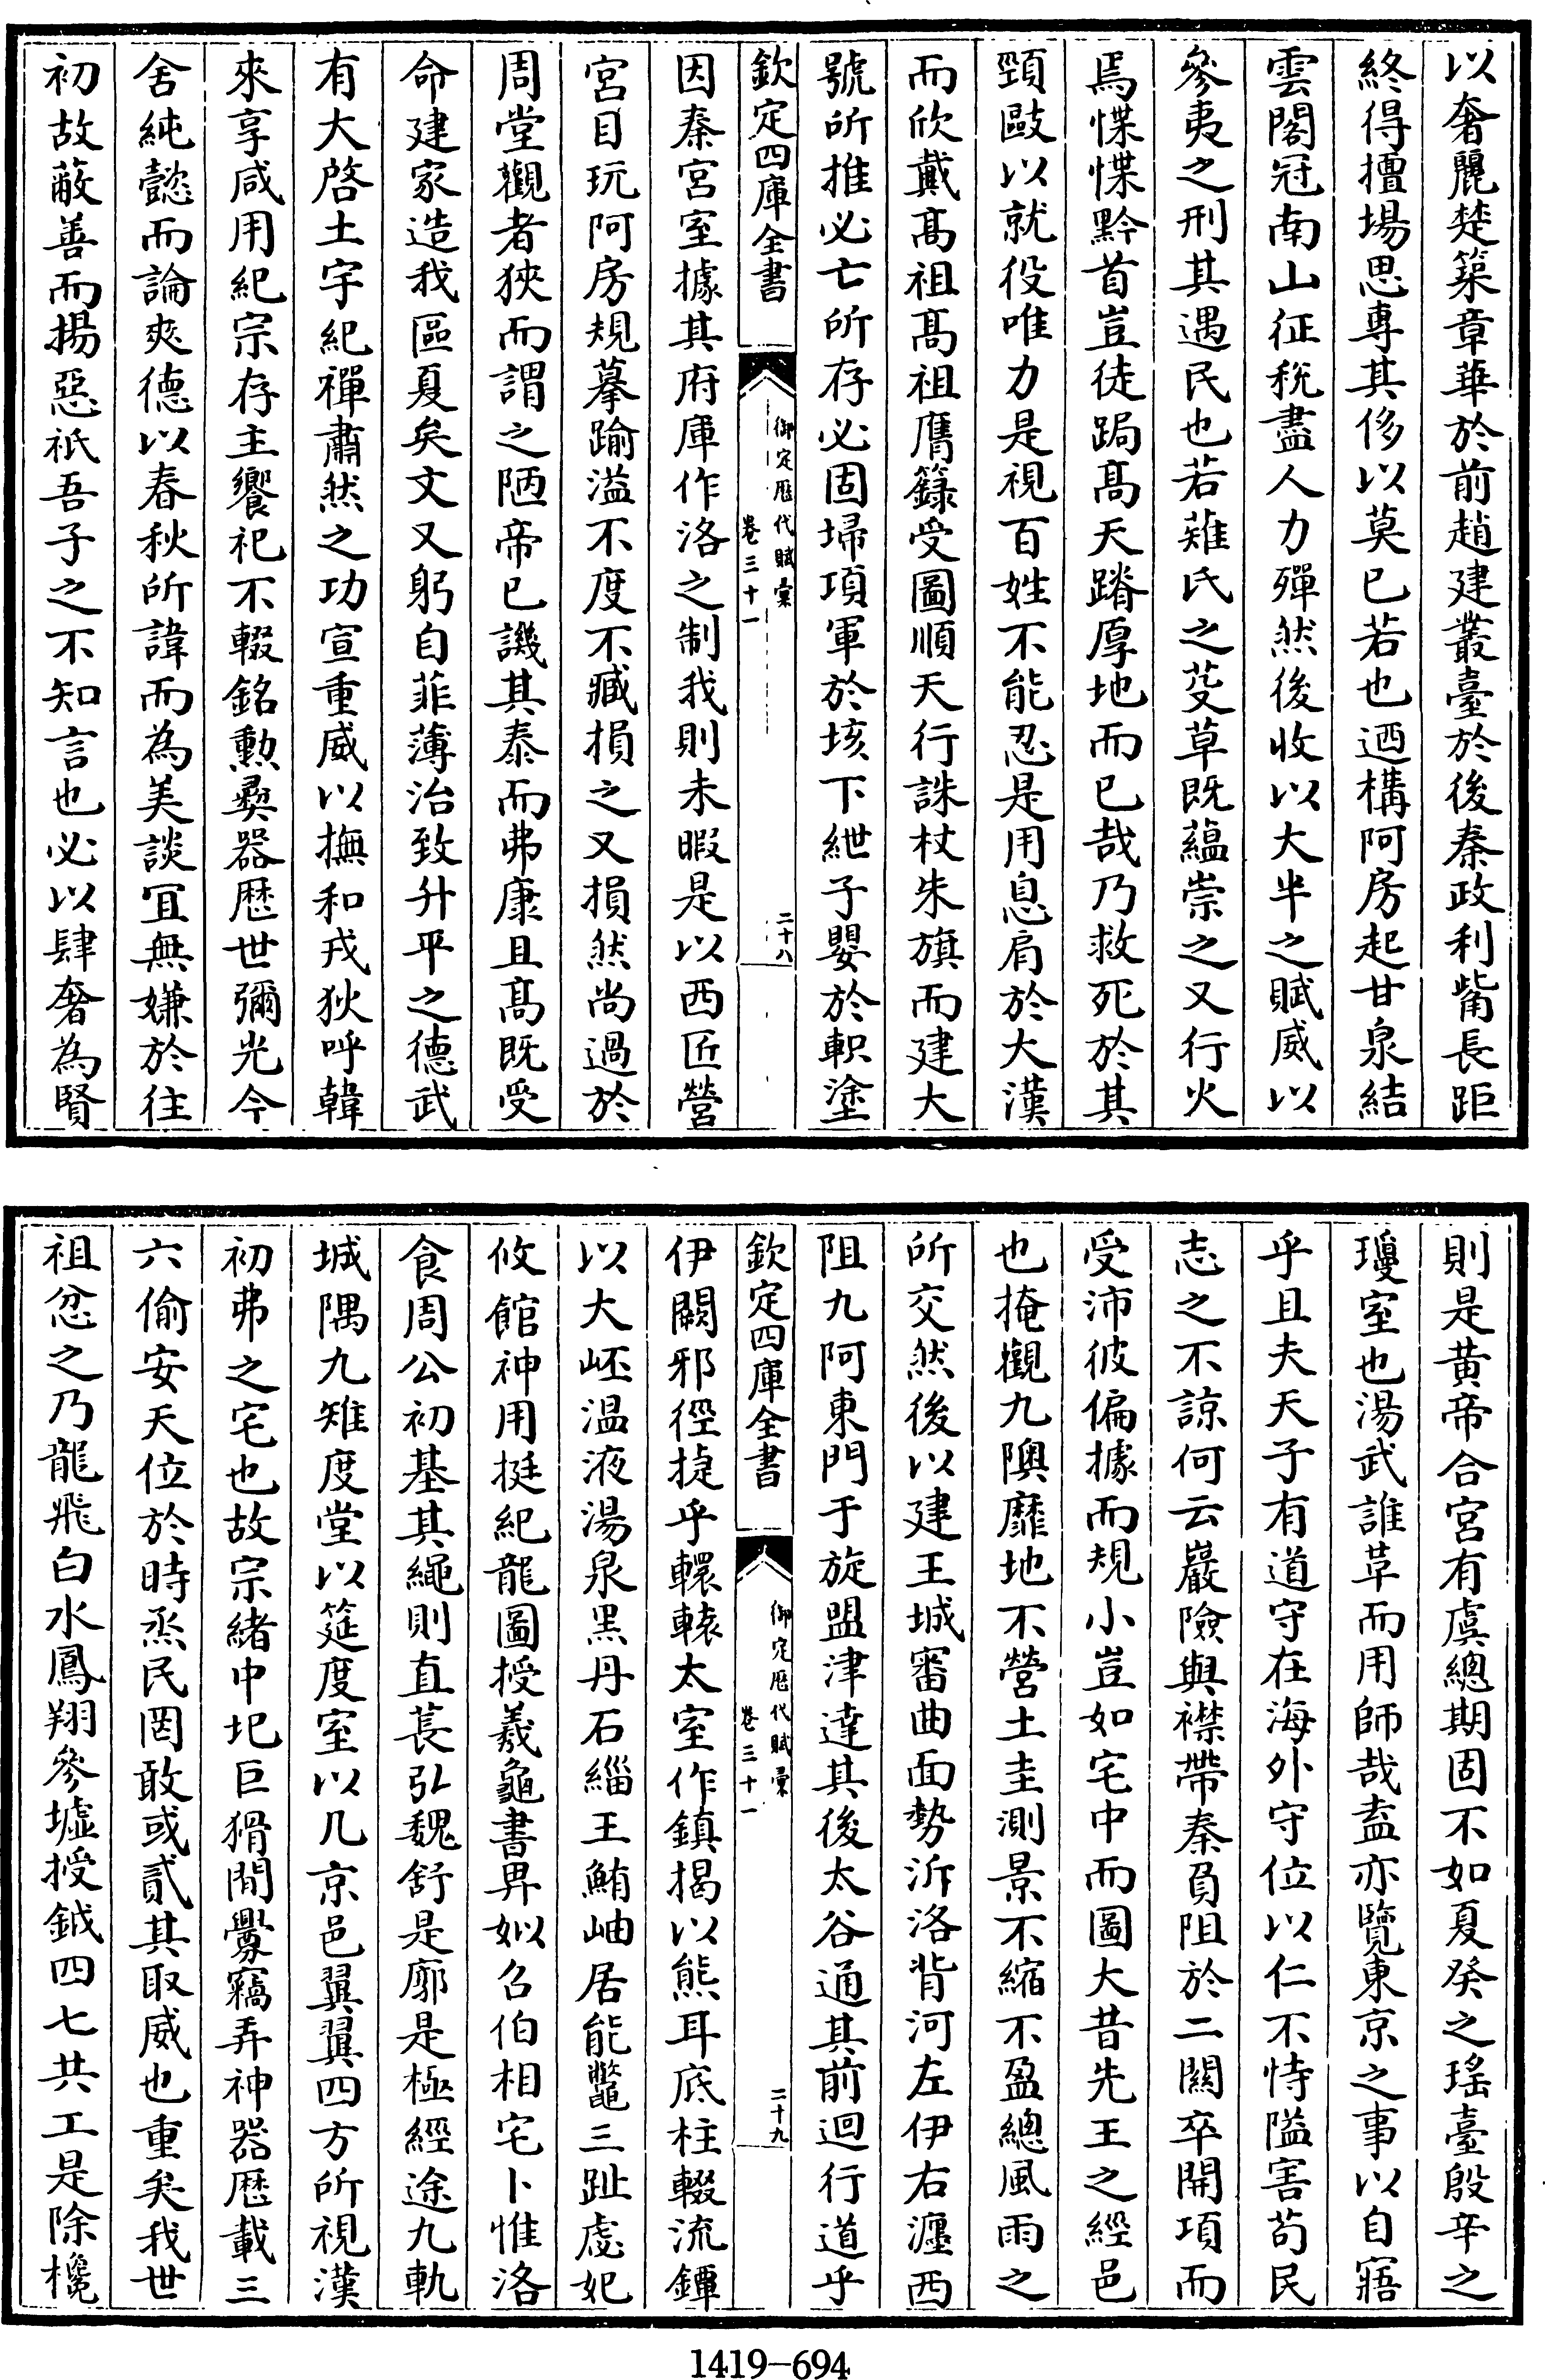 以奢麗楚築章華於前趙建叢臺於後秦政利觜長距
終得擅場思專其侈以莫已若也迺構阿房起甘泉結
雲閣冠南山征稅盡人力殫然後收以大半之賦威以
參夷之刑其遇民也若薙氏之芟草既蘊崇之又行火
焉惵惵黔首豈徒跼髙天蹐厚地而已哉乃救死於其
頸敺以就役唯力是視百姓不能忍是用息肩於大漢
而欣戴髙祖髙祖膺籙受圖順天行誅杖朱旗而建大
號所推必亡所存必固埽項軍於垓下紲子嬰於軹塗
欽定四庫全書
御定歴代賦彙
卷三十一
二十八
因秦宮室據其府庫作洛之制我則未暇是以西匠營
宮目玩阿房規摹踰溢不度不臧損之又損然尚過於
周堂觀者狹而謂之陋帝已譏其泰而弗康且髙既受
命建家造我區夏矣文又躬自菲薄治致升平之德武
有大啓土宇紀禪肅然之功宣重威以撫和戎狄呼韓
來享咸用紀宗存主饗祀不輟銘勲彞器歴世彌光今
舍純懿而論爽德以春秋所諱而為美談宜無嫌於往
初故蔽善而揚惡祇吾子之不知言也必以肆奢為賢
則是黄帝合宮有虞總期固不如夏癸之瑤臺殷辛之
瓊室也湯武誰革而用師哉盍亦覽東京之事以自寤
乎且夫天子有道守在海外守位以仁不恃隘害苟民
志之不諒何云巖險與襟帶秦負阻於二關卒開項而
受沛彼偏據而規小豈如宅中而圖大昔先王之經邑
也掩觀九隩靡地不營土圭測景不縮不盈總風雨之
所交然後以建王城審曲面勢泝洛背河左伊右瀍西
阻九阿東門于旋盟津達其後太谷通其前迴行道乎
欽定四庫全書
御定歴代賦彙
卷三十一
二十九
伊闕邪徑捷乎轘轅太室作鎮揭以熊耳底柱輟流鐔
以大岯温液湯泉黑丹石緇王鮪岫居能鼈三趾虙妃
攸館神用挺紀龍圖授羲龜書畀姒召伯相宅卜惟洛
食周公初基其繩則直萇弘魏舒是廓是極經途九軌
城隅九雉度堂以筵度室以几京邑翼翼四方所視漢
初弗之宅也故宗緒中圮巨猾閒舋竊弄神器歴載三
六偷安天位於時烝民罔敢或貳其取威也重矣我世
祖忿之乃龍飛白水鳳翔參墟授鉞四七共工是除欃
1419-694